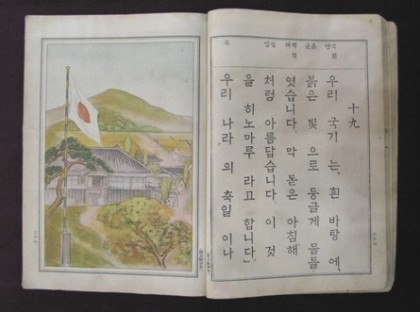 十九
우리 국기 는, 흰 바탕 에,
붉은 빛 으로 둥글게 물들
엿습니다. 막 돋은 아침해
처럼 아름답습니다. 이 것
을 히노마루 라고 합니다.
우리 나라 의 축일 이나